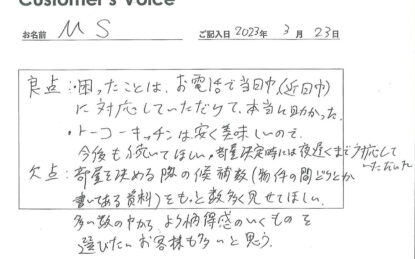 Customer's Voice
お名前 M S ご記入日 2023年 3月 23日
良点:・困ったことは、お電話で当日中(近日中)
に対応していただけて、本当に助かった。
・トーコーキッチンは安く美味しいので、
今後も続いてほしい。・部屋決定時には夜遅くまで対応して
いただいた
欠点:・部屋を決める際の候補数(物件の間どりとか
書いてある資料)をもっと数多く見せてほしい。
多い数の中から、より納得感のいくものを
選びたいお客様も多いと思う。